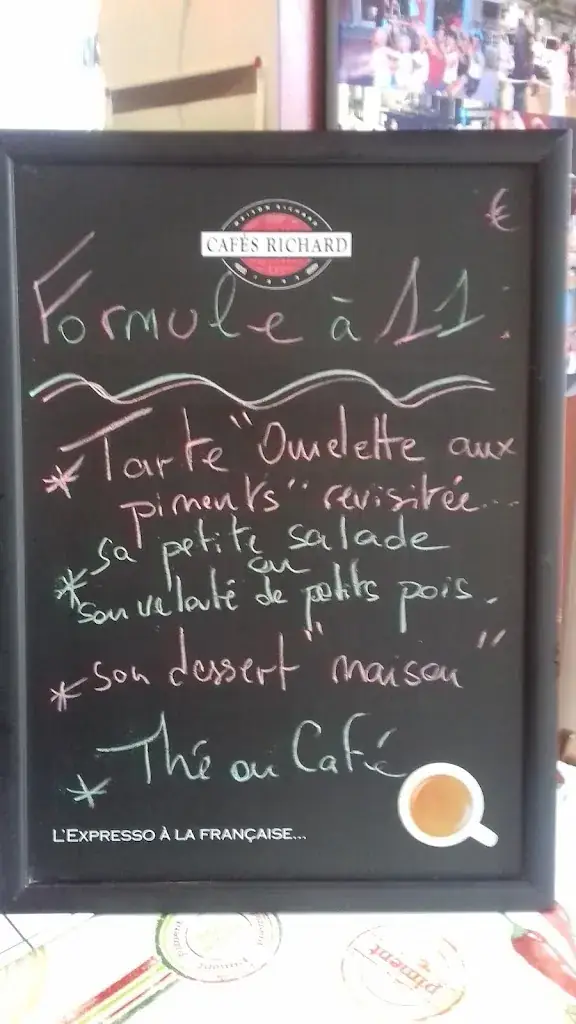 MAISON RICHARD
CAFÉS RICHARD
1892
€
Formule à 11
* Tarte "Omelette aux
piments" revisitée...
* Sa petite salade
ou
son velouté de petits pois.
* son dessert "maison"
* Thé ou Café
L'EXPRESSO À LA FRANÇAISE...
Piment
Piment
piment